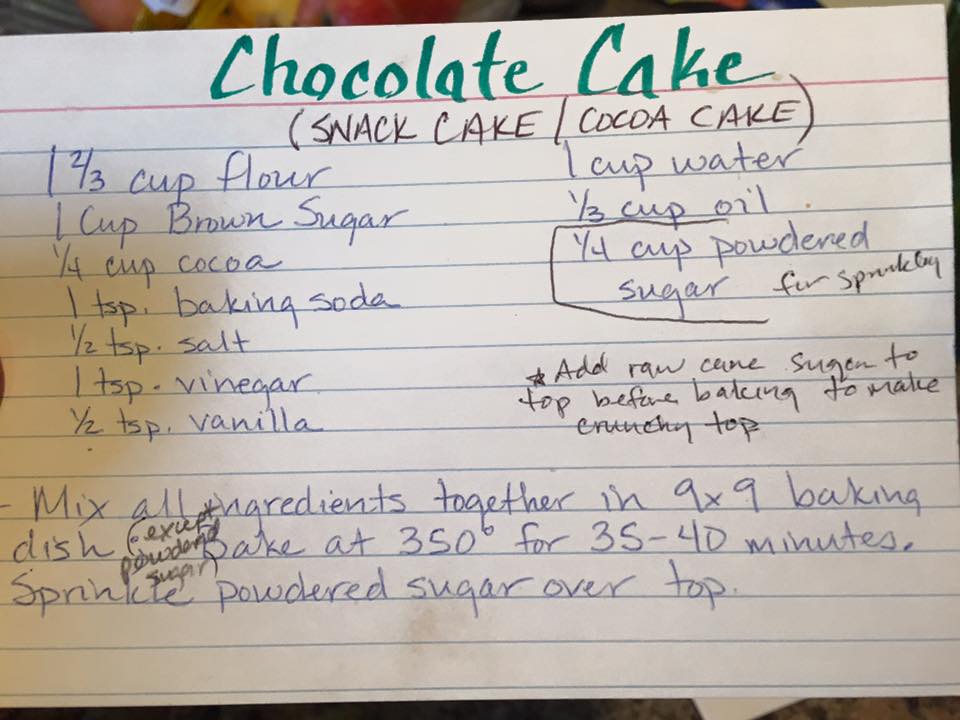 Chocolate Cake
(SNACK CAKE / COCOA CAKE)
1 2/3 cup flour
1 Cup Brown Sugar
1/4 cup cocoa
1 tsp. baking soda
1/2 tsp. salt
1 tsp. vinegar
1/2 tsp. vanilla
1 cup water
1/3 cup oil
1/4 cup powdered
sugar for sprinkling
* Add raw cane sugar to
top before baking to make
crunchy top
- Mix all ingredients together in 9x9 baking
dish (except powdered sugar) Bake at 350° for 35-40 minutes.
Sprinkle powdered sugar over top.